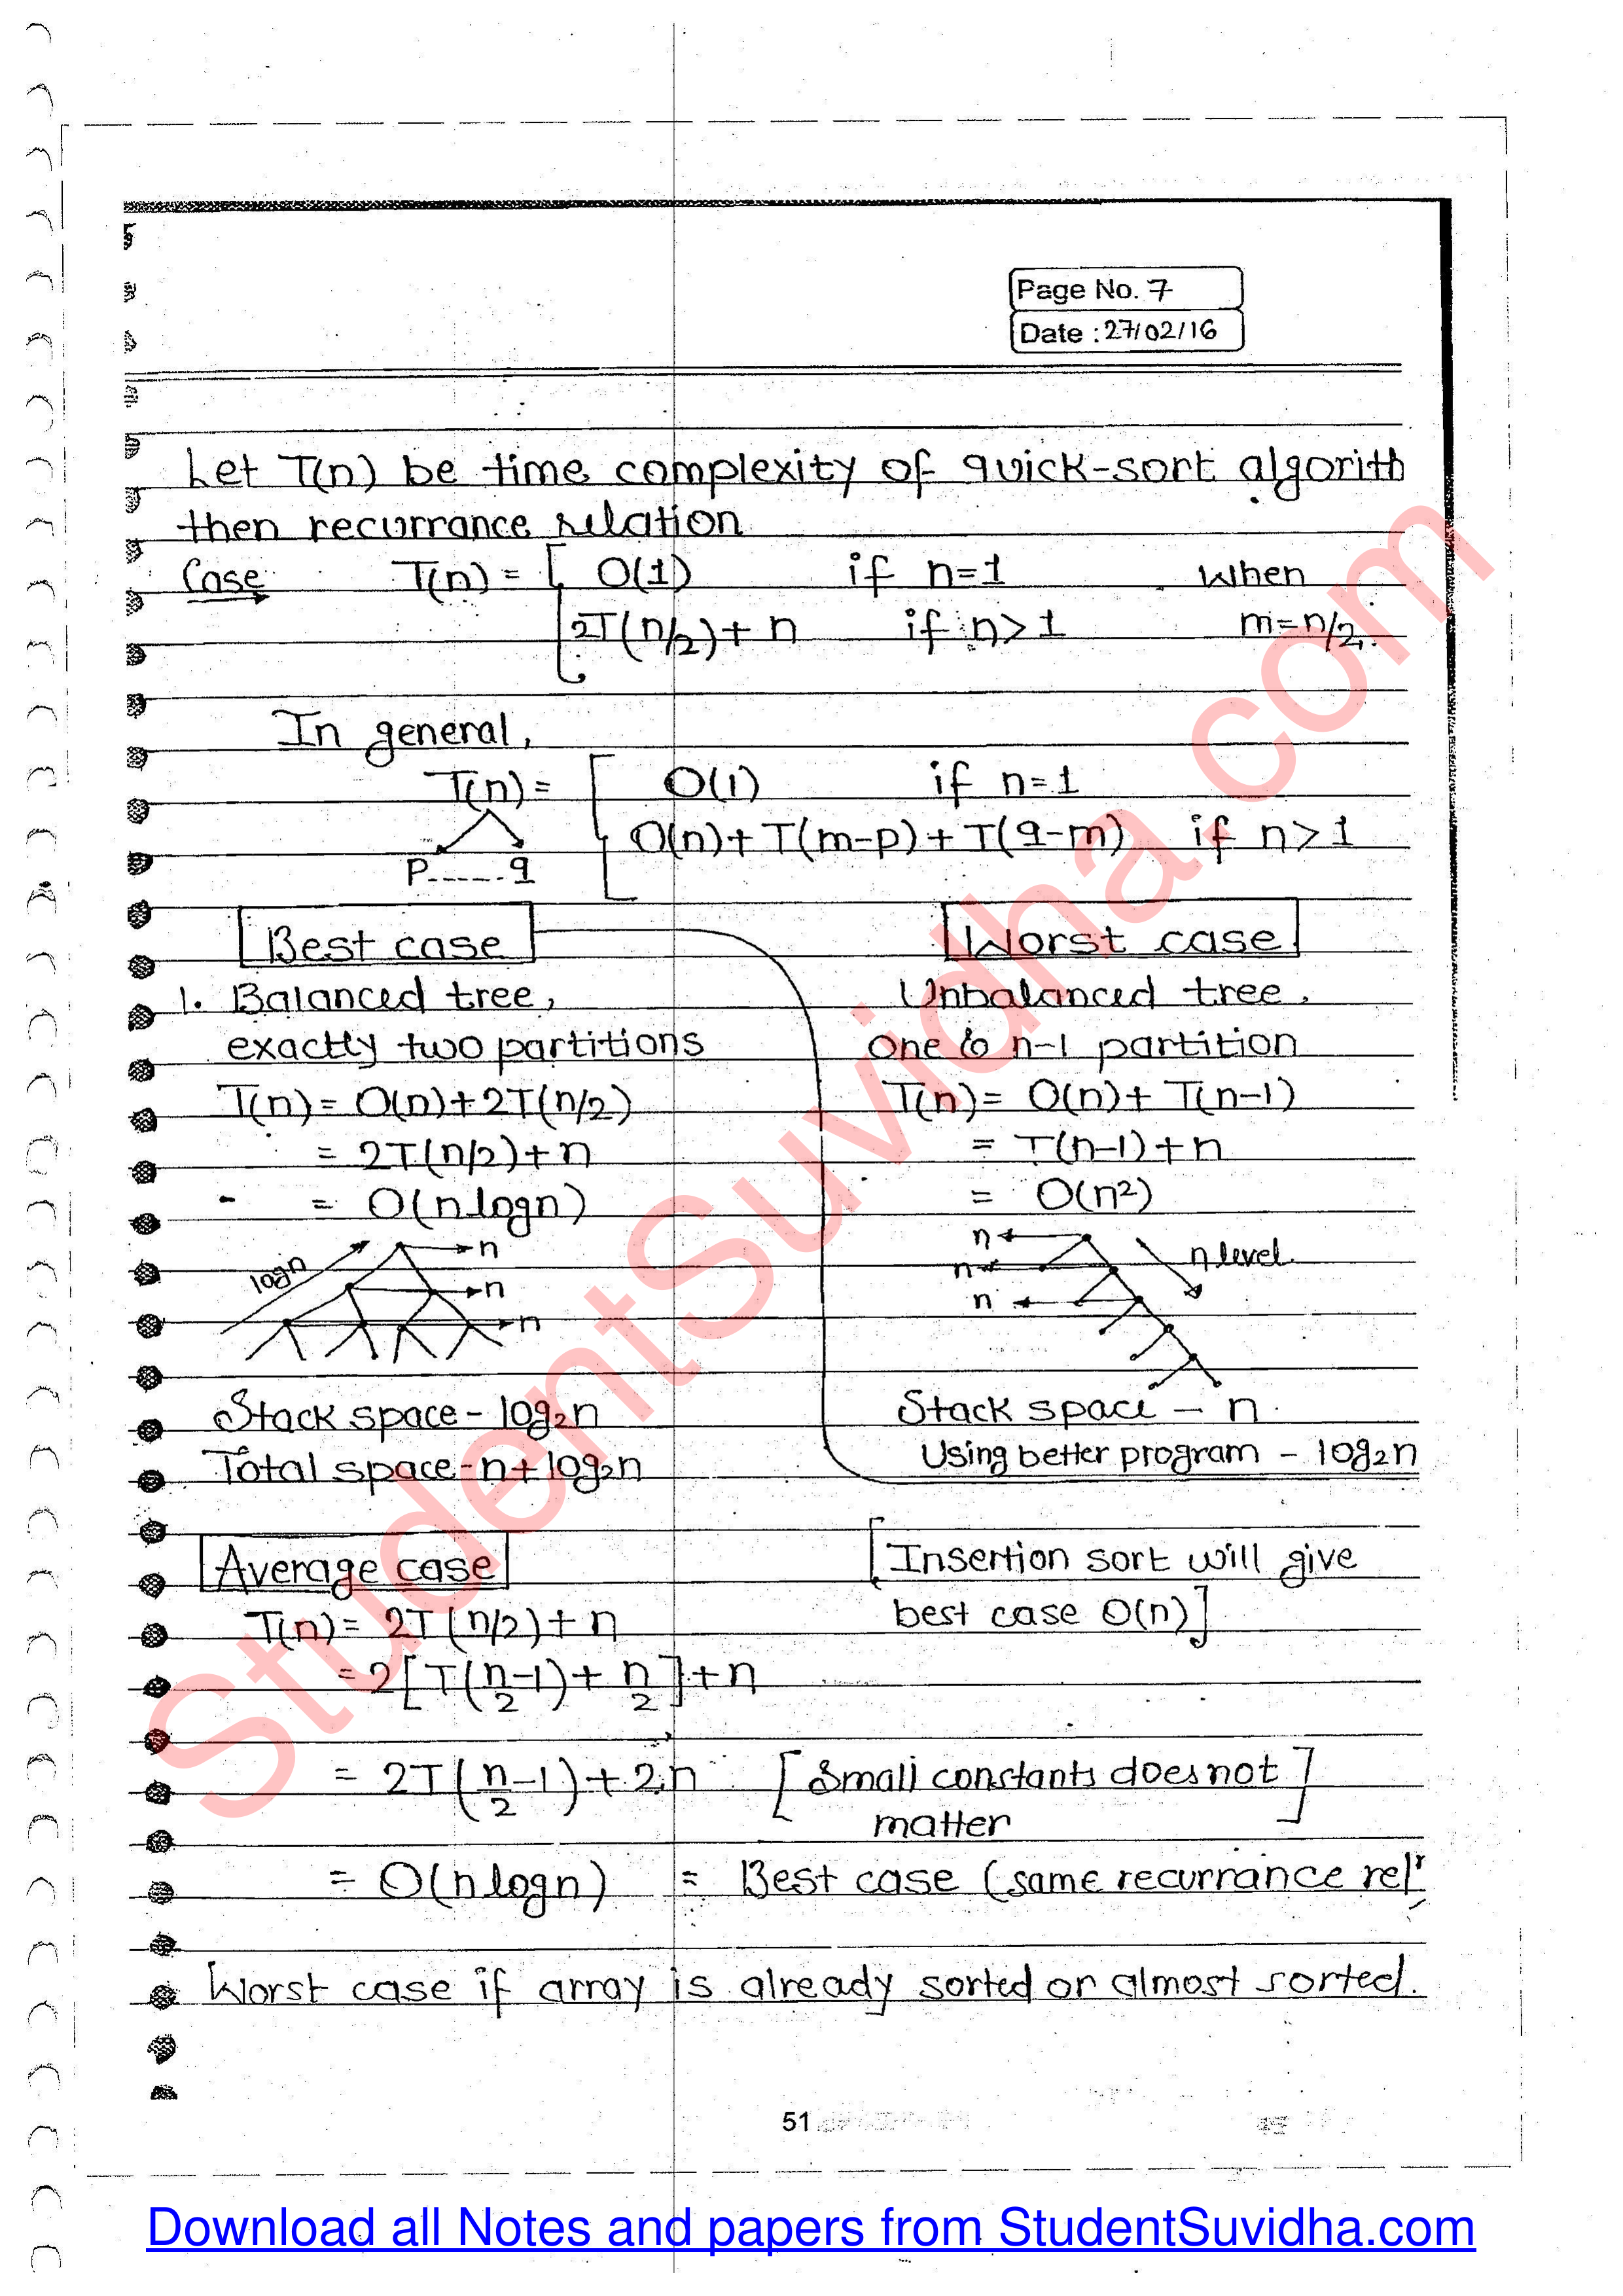 Page No. 7
Date : 27/02/16
Let T(n) be time complexity of quick-sort algorith
then recurrance relation
Case T(n) = [ O(1) if n=1 When
2T(n/2) + n if n>1 m=n/2.
In general,
T(n) = [ O(1) if n=1
O(n) + T(m-p) + T(q-m) if n>1
p-----q
Best case
1. Balanced tree,
exactly two partitions
T(n) = O(n) + 2T(n/2)
= 2T(n/2) + n
= O(n logn)
logn
n
n
n
Stack space - log₂n
Total space - n + log₂n
Worst case
Unbalanced tree.
One & n-1 partition
T(n) = O(n) + T(n-1)
= T(n-1) + n
= O(n²)
n
n
n
n level.
Stack space - n
Using better program - log₂n
Average case
T(n) = 2T(n/2) + n
= 2[T(n/2 -1) + n/2] + n
= 2T(n/2 -1) + 2n [Small constants does not
matter]
= O(n logn) = Best case (same recurrance relⁿ
[Insertion sort will give
best case O(n)]
Worst case if array is already sorted or almost sorted.
51
StudentSuvidha.com
Download all Notes and papers from StudentSuvidha.com